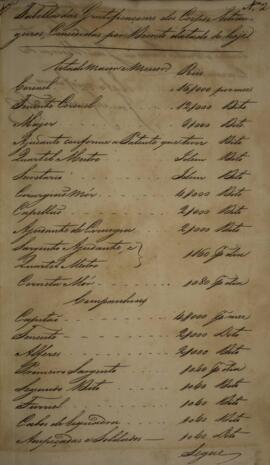 Nº 2
Tabella das Gratificaçoens dos Corpos Estran
geiros, Concedidas por Decreto datado de hoje
Estado Maior e Menor Reis
Coronel 16,000 por mez
Tenente Coronel 12,000 Dito
Major 9,000 Dito
Ajudante conforme a Patente que tiver Dito
Quartel Mestre Idem Dito
Secretario Idem Dito
Cirurgião Mór 4,000 Dito
Capellão 2,000 Dito
Ajudante de Cirurgia 2,000 Dito
Sargento Ajudante, e
Quartel Mestre
Corneta Mór
Companhias
Capitão 4,000
Tenente 2,000 Dito
Alferes 2,000 Dito
Primeiro Sargento
Segundo Dito Dito
Furriel Dito
Cabos de Esquadra Dito
Anspeçadas e Soldados Dito
Segue